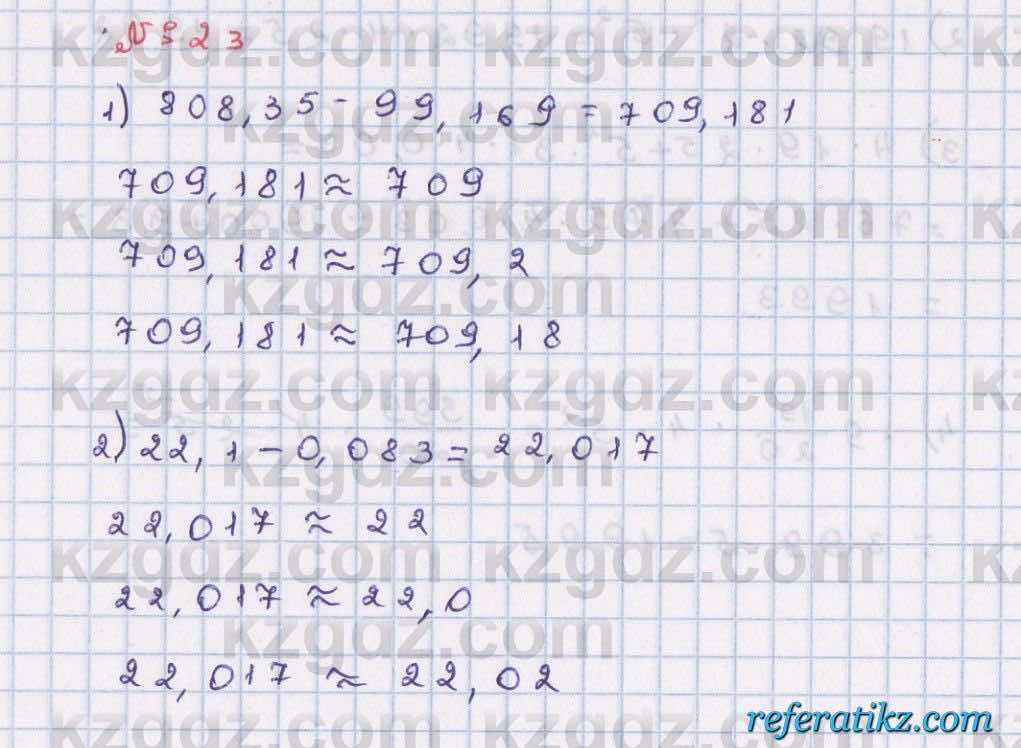 № 923
1) 808,35 - 99,169 = 709,181
709,181 ≈ 709
709,181 ≈ 709,2
709,181 ≈ 709,18
2) 22,1 - 0,083 = 22,017
22,017 ≈ 22
22,017 ≈ 22,0
22,017 ≈ 22,02
kzgdz.com
referatikz.com